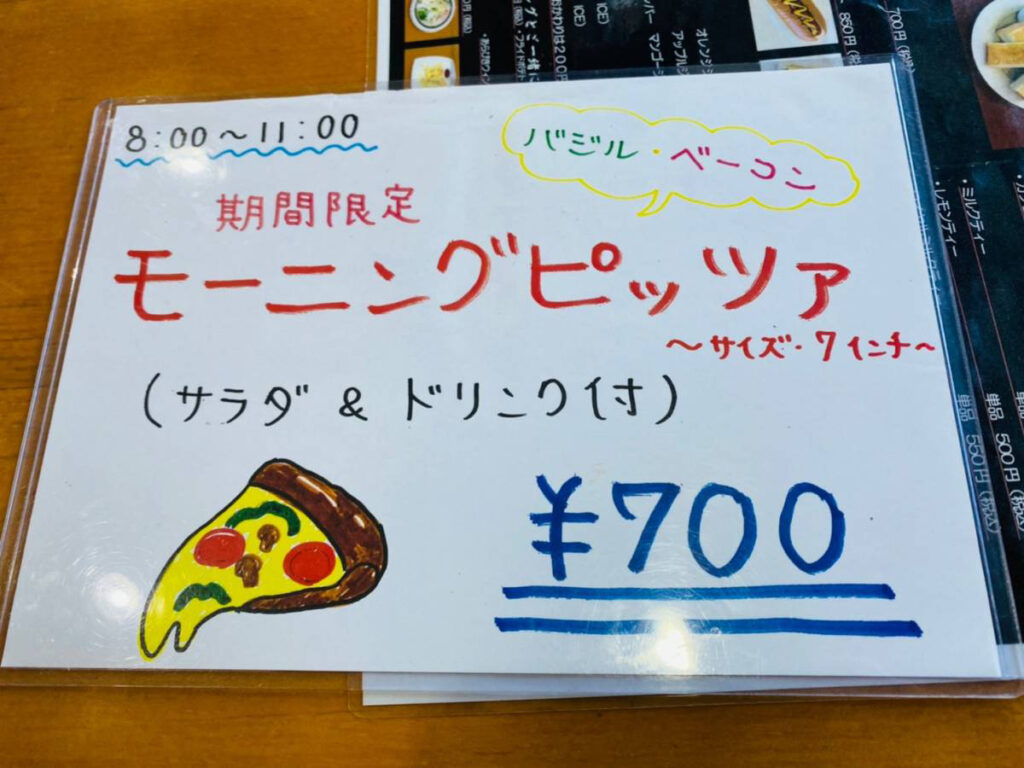 8:00～11:00
バジル・ベーコン
期間限定
モーニングピッツァ
～サイズ・7インチ～
(サラダ & ドリンク付)
¥700
700円(税込)
850円(税
ICE)
ICE)
マンゴー
・ミルクティー
・レモンティー
単品 500円(税込)
単品 550円(税込)